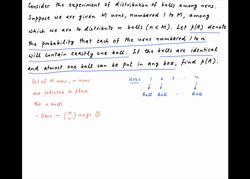 Consider the experiment of distribution of balls among urns.
Suppose we are given M urns, numbered 1 to M, among
which we are to distribute n balls (n < M). Let P(A) denote
the probability that each of the urns numbered 1 to n
will contain exactly one ball. If the balls are identical
and atmost one ball can be put in any box, find P(A).
Out of M urns, n urns
are selected to place
the n balls
- Done in (M n) ways
Urns 1 2 3 ... n
Ball Ball ... Ball